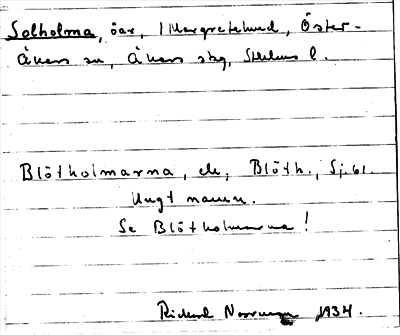 Solholma, öar, Margretelund, Öster-
Åkers sn, Åkers skg, Sthlms l.
Blötholmarna, ek, Blöth., Sj. 61.
Ungt namn.
Se Blötholmarna!
Rickard 1934.